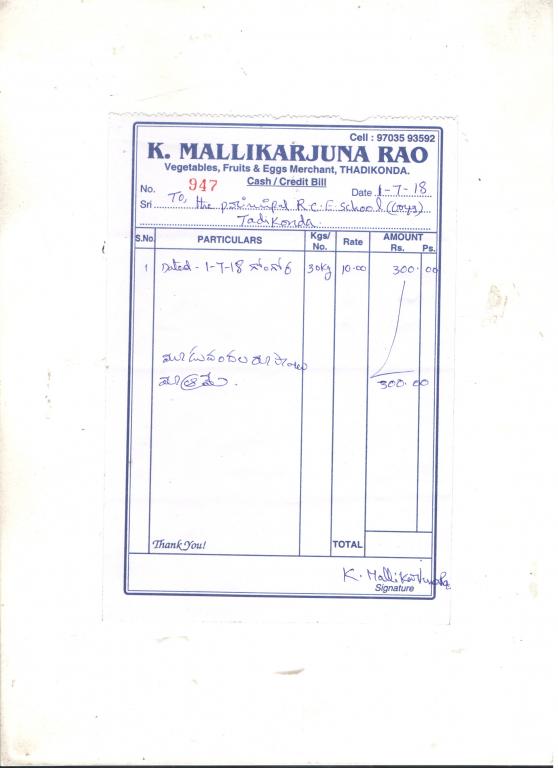 Cell : 97035 93592
K. MALLIKARJUNA RAO
Vegetables, Fruits & Eggs Merchant, THADIKONDA.
Cash / Credit Bill
No. 947 Date 1-7-18
Sri To, the principal R.C.E. School (Boys)
Tadikonda.
S.No. PARTICULARS Kgs/ No. Rate AMOUNT Rs. Ps.
1 Dated - 1-7-18 గోంగూర 30kg 10.00 300.00
మూడువందల రూపాయలు
మాత్రమే. 300.00
Thank You! TOTAL
K. Mallikarjuna Rao
Signature